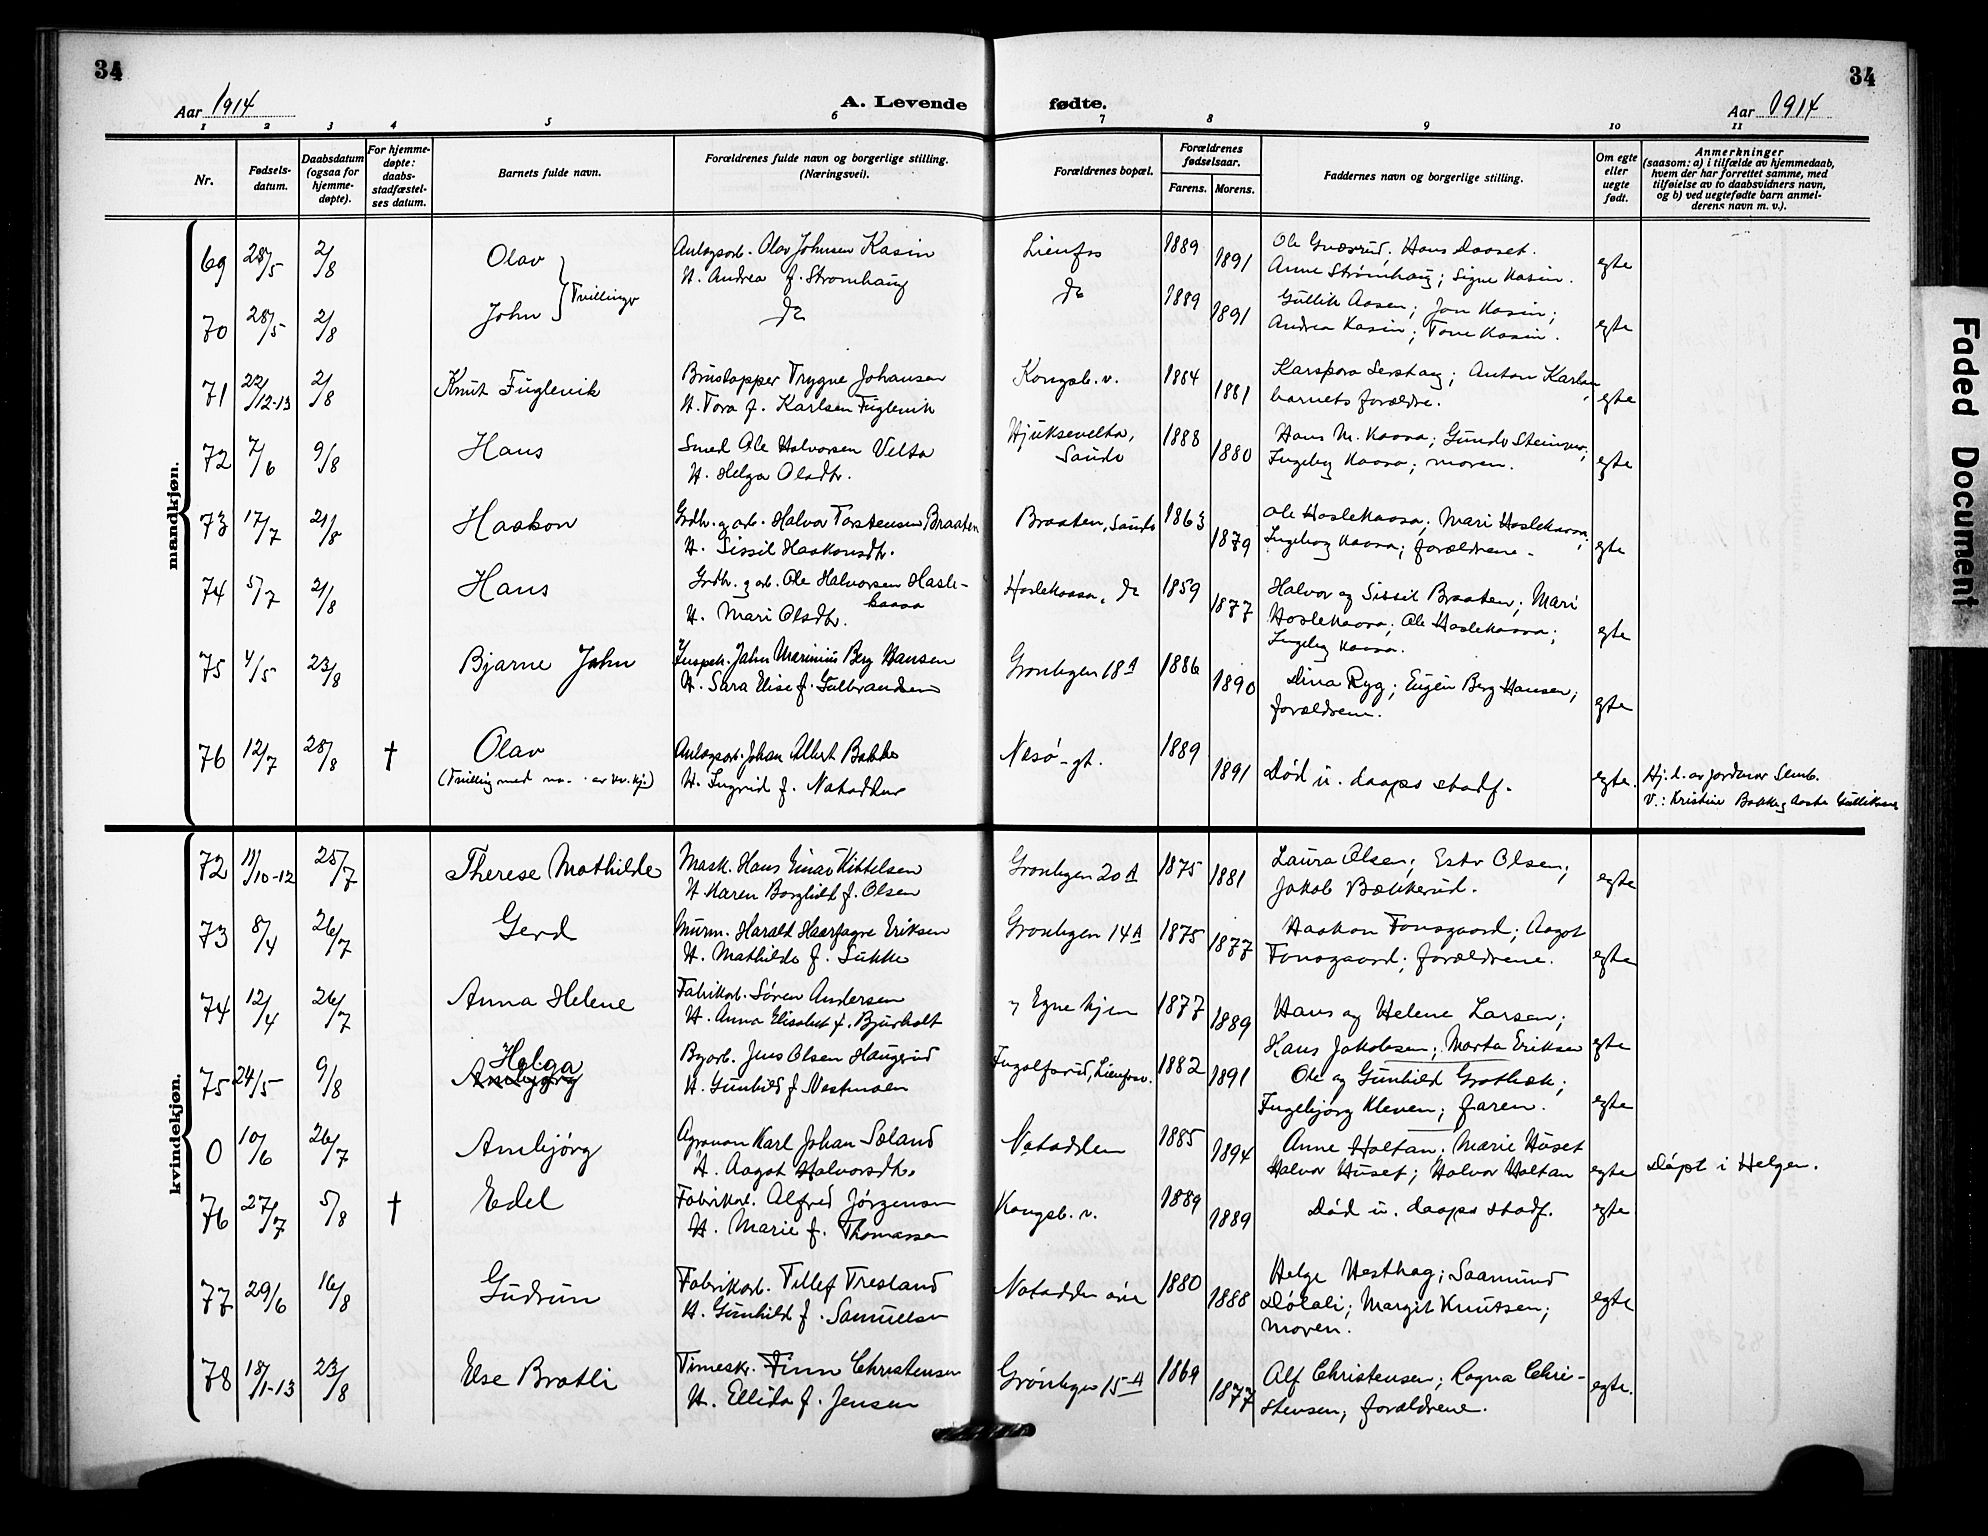 34
34
Aar 1914
A. Levende fødte.
Aar 1914
1 2 3 4 5 6 7 8 9 10 11
Nr.
Fødsels-
datum.
Daabsdatum
(ogsaa for
hjemme-
døpte).
For hjemme-
døpte:
daabs-
stadfæstel-
ses datum.
Barnets fulde navn.
Forældrenes fulde navn og borgerlige stilling.
(Næringsvei).
Forældrenes bopæl.
Forældrenes
fødselsaar.
Farens. Morens.
Faddernes navn og borgerlige stilling.
Om egte
eller
uegte
født.
Anmerkninger
(saasom: a) i tilfælde av hjemmedaab,
hvem der har forrettet samme, med
tilføielse av to daabsvidners navn,
og b) ved uegtefødte barn anmel-
derens navn m. v.).
mandkjøn.
69 28/5 2/8 Olav Anlægsarb. Olav Johnsen Kasin Lienfos 1889 1891 Ole Gvæsrud; Hans Daaset.
H. Andrea f. Strømhaug Anne Strømhaug; Signe Kasin. egte
Tvillinger
70 28/5 2/8 John do do 1889 1891 Gullik Aasen; Jon Kasin;
Andrea Kasin; Tone Kasin. egte
71 22/12-13 2/8 Knut Fuglevik Brustapper Trygve Johansen Kongsb. v. 1884 1881 Anton Karlsen
H. Tora f. Karlsen Fuglevik barnets forældre. egte
72 7/6 9/8 Hans Smed Ole Halvorsen Velta Hjuksevelta, 1888 1880 Hans M. Kaasa; Gundo
H. Helga Olsdtr. Saude Ingeborg Kaasa; moren. egte
73 17/7 21/8 Haakon Grdbr. og arb. Halvor Torstensen Braaten Braaten, Saude 1863 1879 Ole Haslekaasa; Mari Haslekaasa;
H. Sissil Haakonsdtr. Ingeborg Kaasa; forældrene. egte
74 5/7 21/8 Hans Grdbr. og arb. Ole Halvorsen Hasle- Haslekaasa, do 1859 1877 Halvor og Sissil Braaten; Mari
kaasa Haslekaasa; Ole Haslekaasa;
H. Mari Olsdtr. Ingeborg Kaasa. egte
75 4/5 23/8 Bjarne John Inspek. John Marinius Berg Hansen Grønbyen 18A 1886 1890 Dina Ryg; Eugen Berg Hansen;
H. Sara Elise f. Gulbrandsen forældrene. egte
76 12/7 28/8 † Olav Anlægsarb. Johan Albert Bakke Nesø-gt. 1889 1891 Død u. daaps stadf. egte. Hj. d. av jordmor Semb.
(Tvilling med no. - av kv. kj.) H. Ingrid f. Notodden V.: Kristine Bakke og Aaste Gulliksen
kvindekjøn.
72 11/10-12 25/7 Therese Mathilde Mask. Hans Einar Kittelsen Grønbyen 20A 1875 1881 Laura Olsen; Ester Olsen;
H. Karen Borghild f. Olsen Jakob Bækkerud. egte
73 8/4 26/7 Gerd Murm. Harald Haarfagre Eriksen Grønbyen 14A 1875 1877 Haakon Fonsgaard; Aagot
H. Mathilde f. Sukke Fonsgaard; forældrene. egte
74 12/4 26/7 Anna Helene Fabrikarb. Søren Andersen Egne hjem 1877 1889 Hans og Helene Larsen;
H. Anna Elisabet f. Bjurholt Hans Jakobsen; Marta Eriksen egte
75 24/5 9/8 Helga Byarb. Jens Olsen Haugerud Ingolfsrud, Lienfosv. 1882 1891 Ole og Gunhild Grotbæk;
Annbjørg H. Gunhild f. Vestmoen Ingebjørg Kleven; faren. egte
0 10/6 26/7 Annbjørg Agronom Karl Johan Soland Notodden 1885 1894 Anne Holtan; Marie Huset
H. Aagot Halvorsdtr. Halvor Huset; Halvor Holtan egte Døpt i Helgen.
76 27/7 5/8 † Edel Fabrikarb. Alfred Jørgensen Kongsb. v. 1889 1889 Død u. daaps stadf. egte
H. Marie f. Thomassen
77 29/6 16/8 Gudrun Fabrikarb. Tellef Tresland Notodden øvre 1880 1888 Helge Vesthag; Saamund
H. Gunhild f. Samuelsen Dølali; Margit Knutsen; egte
moren.
78 18/1-13 23/8 Else Bratli Timeskr. Finn Christensen Grønbyen 15A 1869 1877 Alf Christensen; Ragna Chri-
H. Ellida f. Jensen stensen; forældrene. egte.
Faded Document